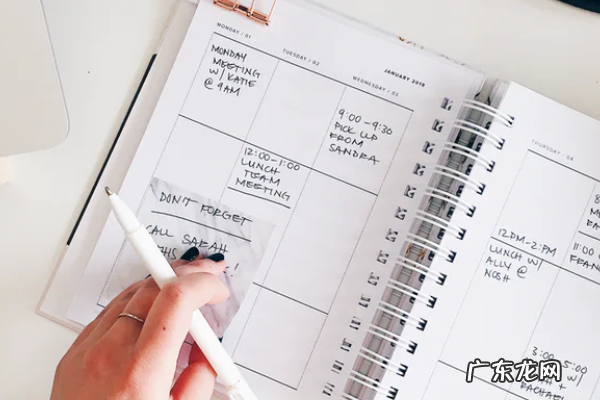 MONDAY / 01
MONDAY
MEETING
W/ KATIE
@ 9AM
TUESDAY / 02
12:00-1:00
LUNCH
TEAM
MEETING
JANUARY 2018
WEDNESDAY / 03
9:00-9:30
PICK UP
FROM
SANDRA
DON'T FORGET
CALL SARAH
THIS
!
THURSDAY / 04
12PM-2PM
LUNCH W/
ALLY @
NOSH
8:
11:00
3:00-5:00
+
广东龙网